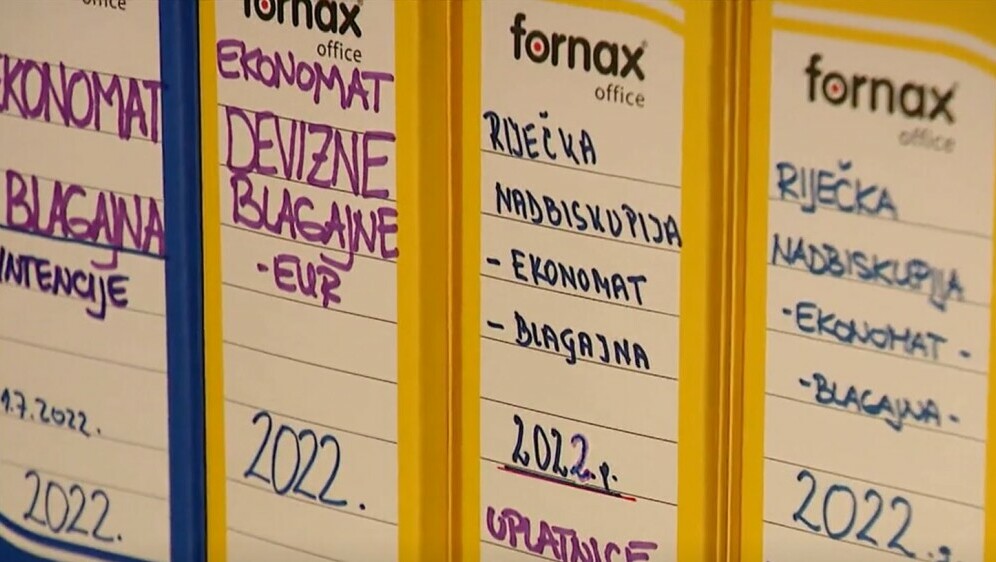 office
EKONOMAT
BLAGAJNA
INTENCIJE
1.7.2022.
2022.
fornax
office
EKONOMAT
DEVIZNE
BLAGAJNE
-EUR
2022.
fornax
office
RIJEČKA
NADBISKUPIJA
- EKONOMAT
- BLAGAJNA
2022.g.
UPLATNICE
fornax
office
RIJEČKA
NADBISKUPIJA
-EKONOMAT-
-BLAGAJNA-
2022.